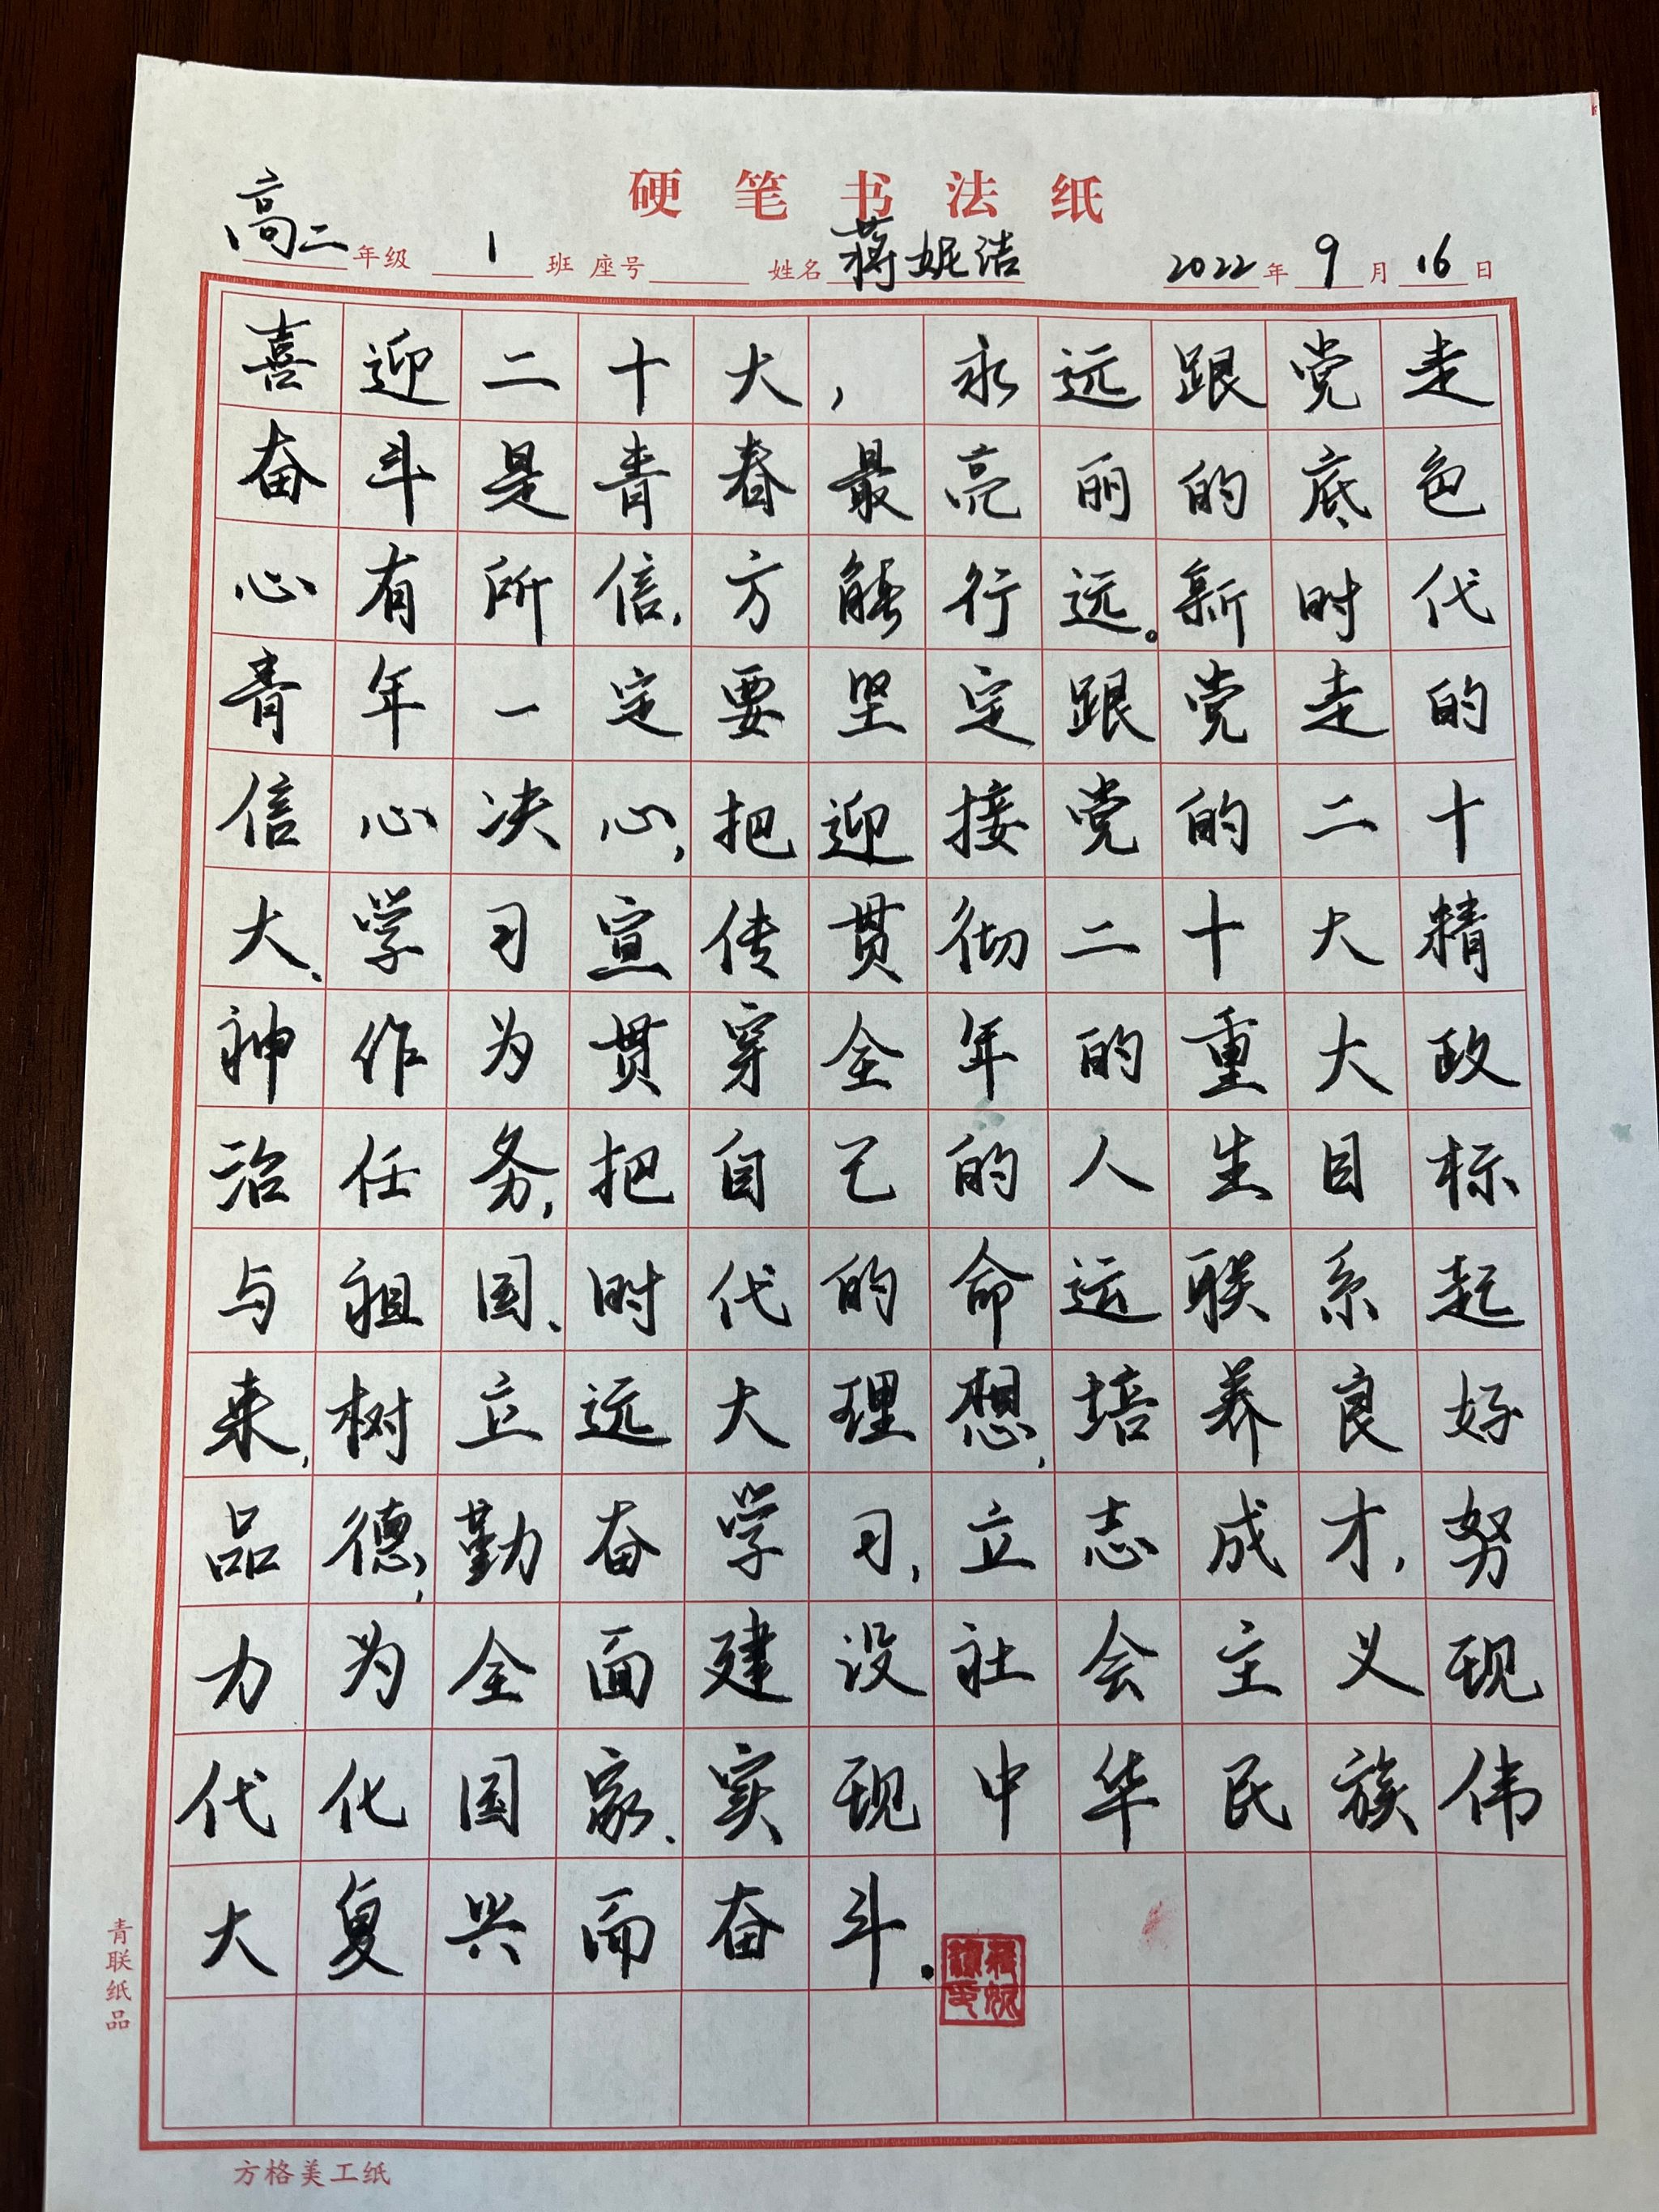 硬笔书法纸
高二年级 1 班 座号 姓名 蒋妮洁 2022年9月16日
喜迎二十大，永远跟党走
奋斗是青春最亮丽的底色
心有所信，方能行远。新时代
青年一定要坚定跟党走的
信心决心，把迎接党的二十
大、学习宣传贯彻二十大精
神作为贯穿全年的重大政
治任务，把自己的人生目标
与祖国、时代的命运联系起
来，树立远大理想，培养良好
品德，勤奋学习，立志成才，努
力为全面建设社会主义现
代化国家、实现中华民族伟
大复兴而奋斗.
青联纸品
方格美工纸